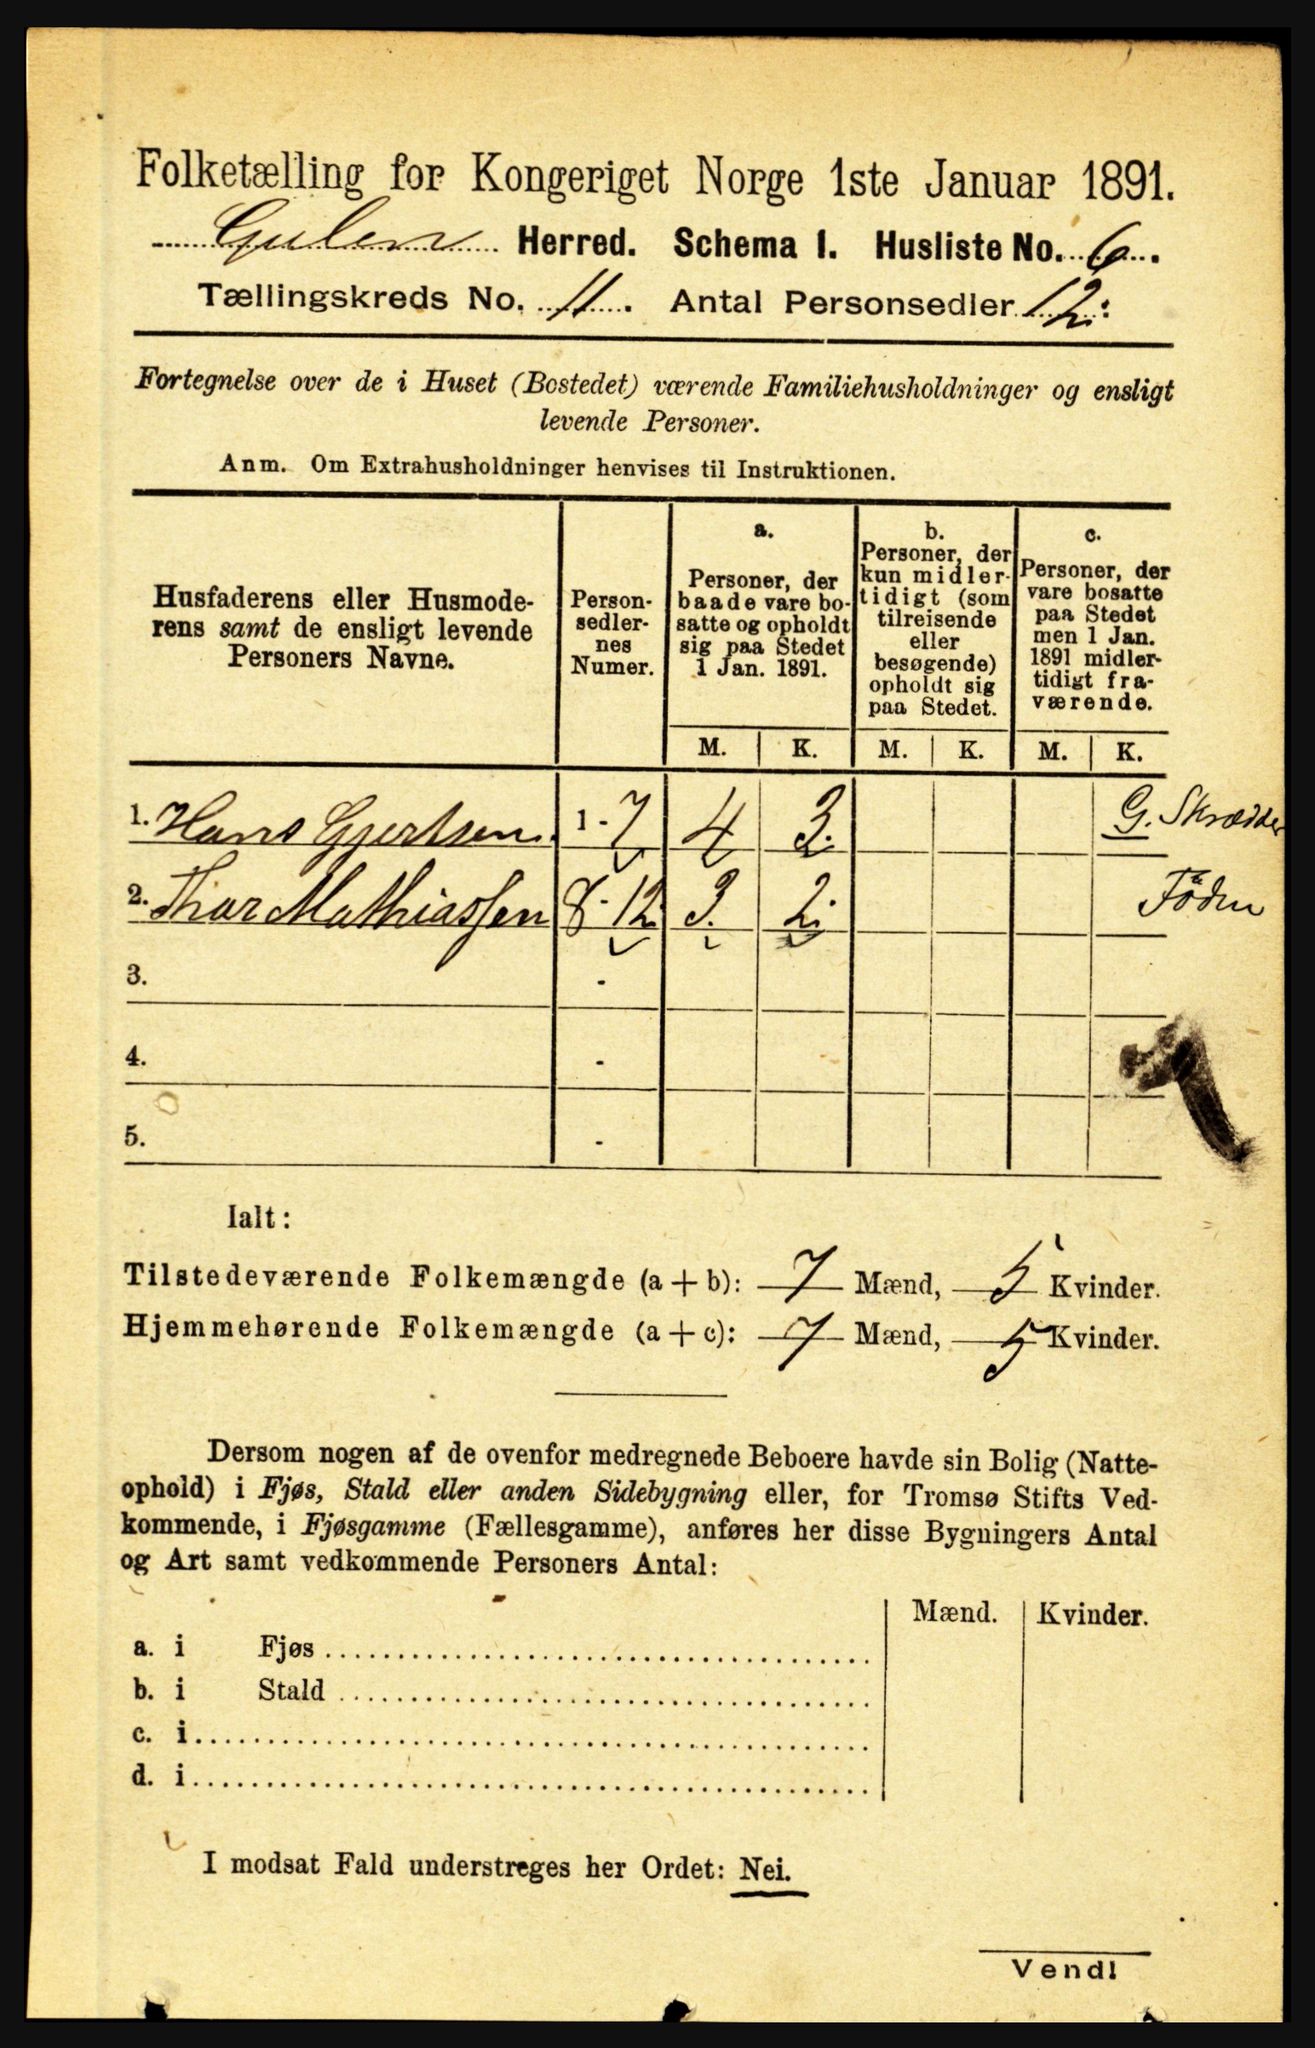 Folketælling for Kongeriget Norge 1ste Januar 1891.
Gulen Herred. Schema I. Husliste No. 6.
Tællingskreds No. 11. Antal Personsedler 12.
Fortegnelse over de i Huset (Bostedet) værende Familiehusholdninger og ensligt
levende Personer.
Anm. Om Extrahusholdninger henvises til Instruktionen.
Husfaderens eller Husmode-
rens samt de ensligt levende
Personers Navne.
Person-
sedler-
nes
Numer.
a.
Personer, der
baade vare bo-
satte og opholdt
sig paa Stedet
1 Jan. 1891.
b.
Personer, der
kun midler-
tidigt (som
tilreisende
eller
besøgende)
opholdt sig
paa Stedet.
c.
Personer, der
vare bosatte
paa Stedet
men 1 Jan.
1891 midler-
tidigt fra-
værende.
M. K. M. K. M. K.
1. Hans Gjertsen. 1 - 7 4 3. G. Skrædder
2. Thor Mathiassen 8 - 12 3. 2. Föden
3. -
4. -
5. -
Ialt:
Tilstedeværende Folkemængde (a + b): 7 Mænd, 5 Kvinder.
Hjemmehørende Folkemængde (a + c): 7 Mænd, 5 Kvinder.
Dersom nogen af de ovenfor medregnede Beboere havde sin Bolig (Natte-
ophold) i Fjøs, Stald eller anden Sidebygning eller, for Tromsø Stifts Ved-
kommende, i Fjøsgamme (Fællesgamme), anføres her disse Bygningers Antal
og Art samt vedkommende Personers Antal:
Mænd. Kvinder.
a. i Fjøs
b. i Stald
c. i
d. i
I modsat Fald understreges her Ordet: Nei.
Vend!